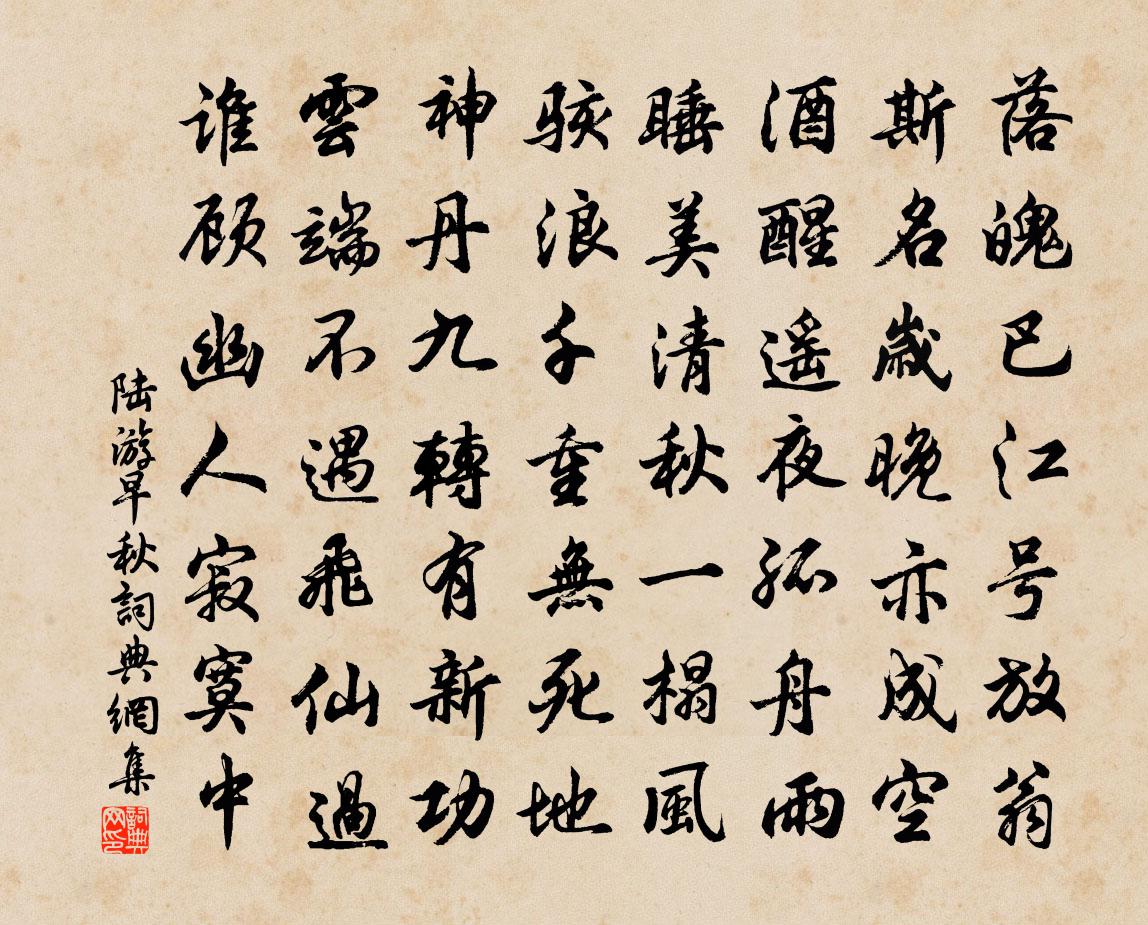 落魄巴江号放翁
斯名歲晚亦成空
酒醒遥夜孤舟雨
睡美清秋一榻風
駭浪千重無死地
神丹九轉有新功
雲端不遇飛仙過
誰顾幽人寂寞中
陆游早秋詞典網集
詞典网印